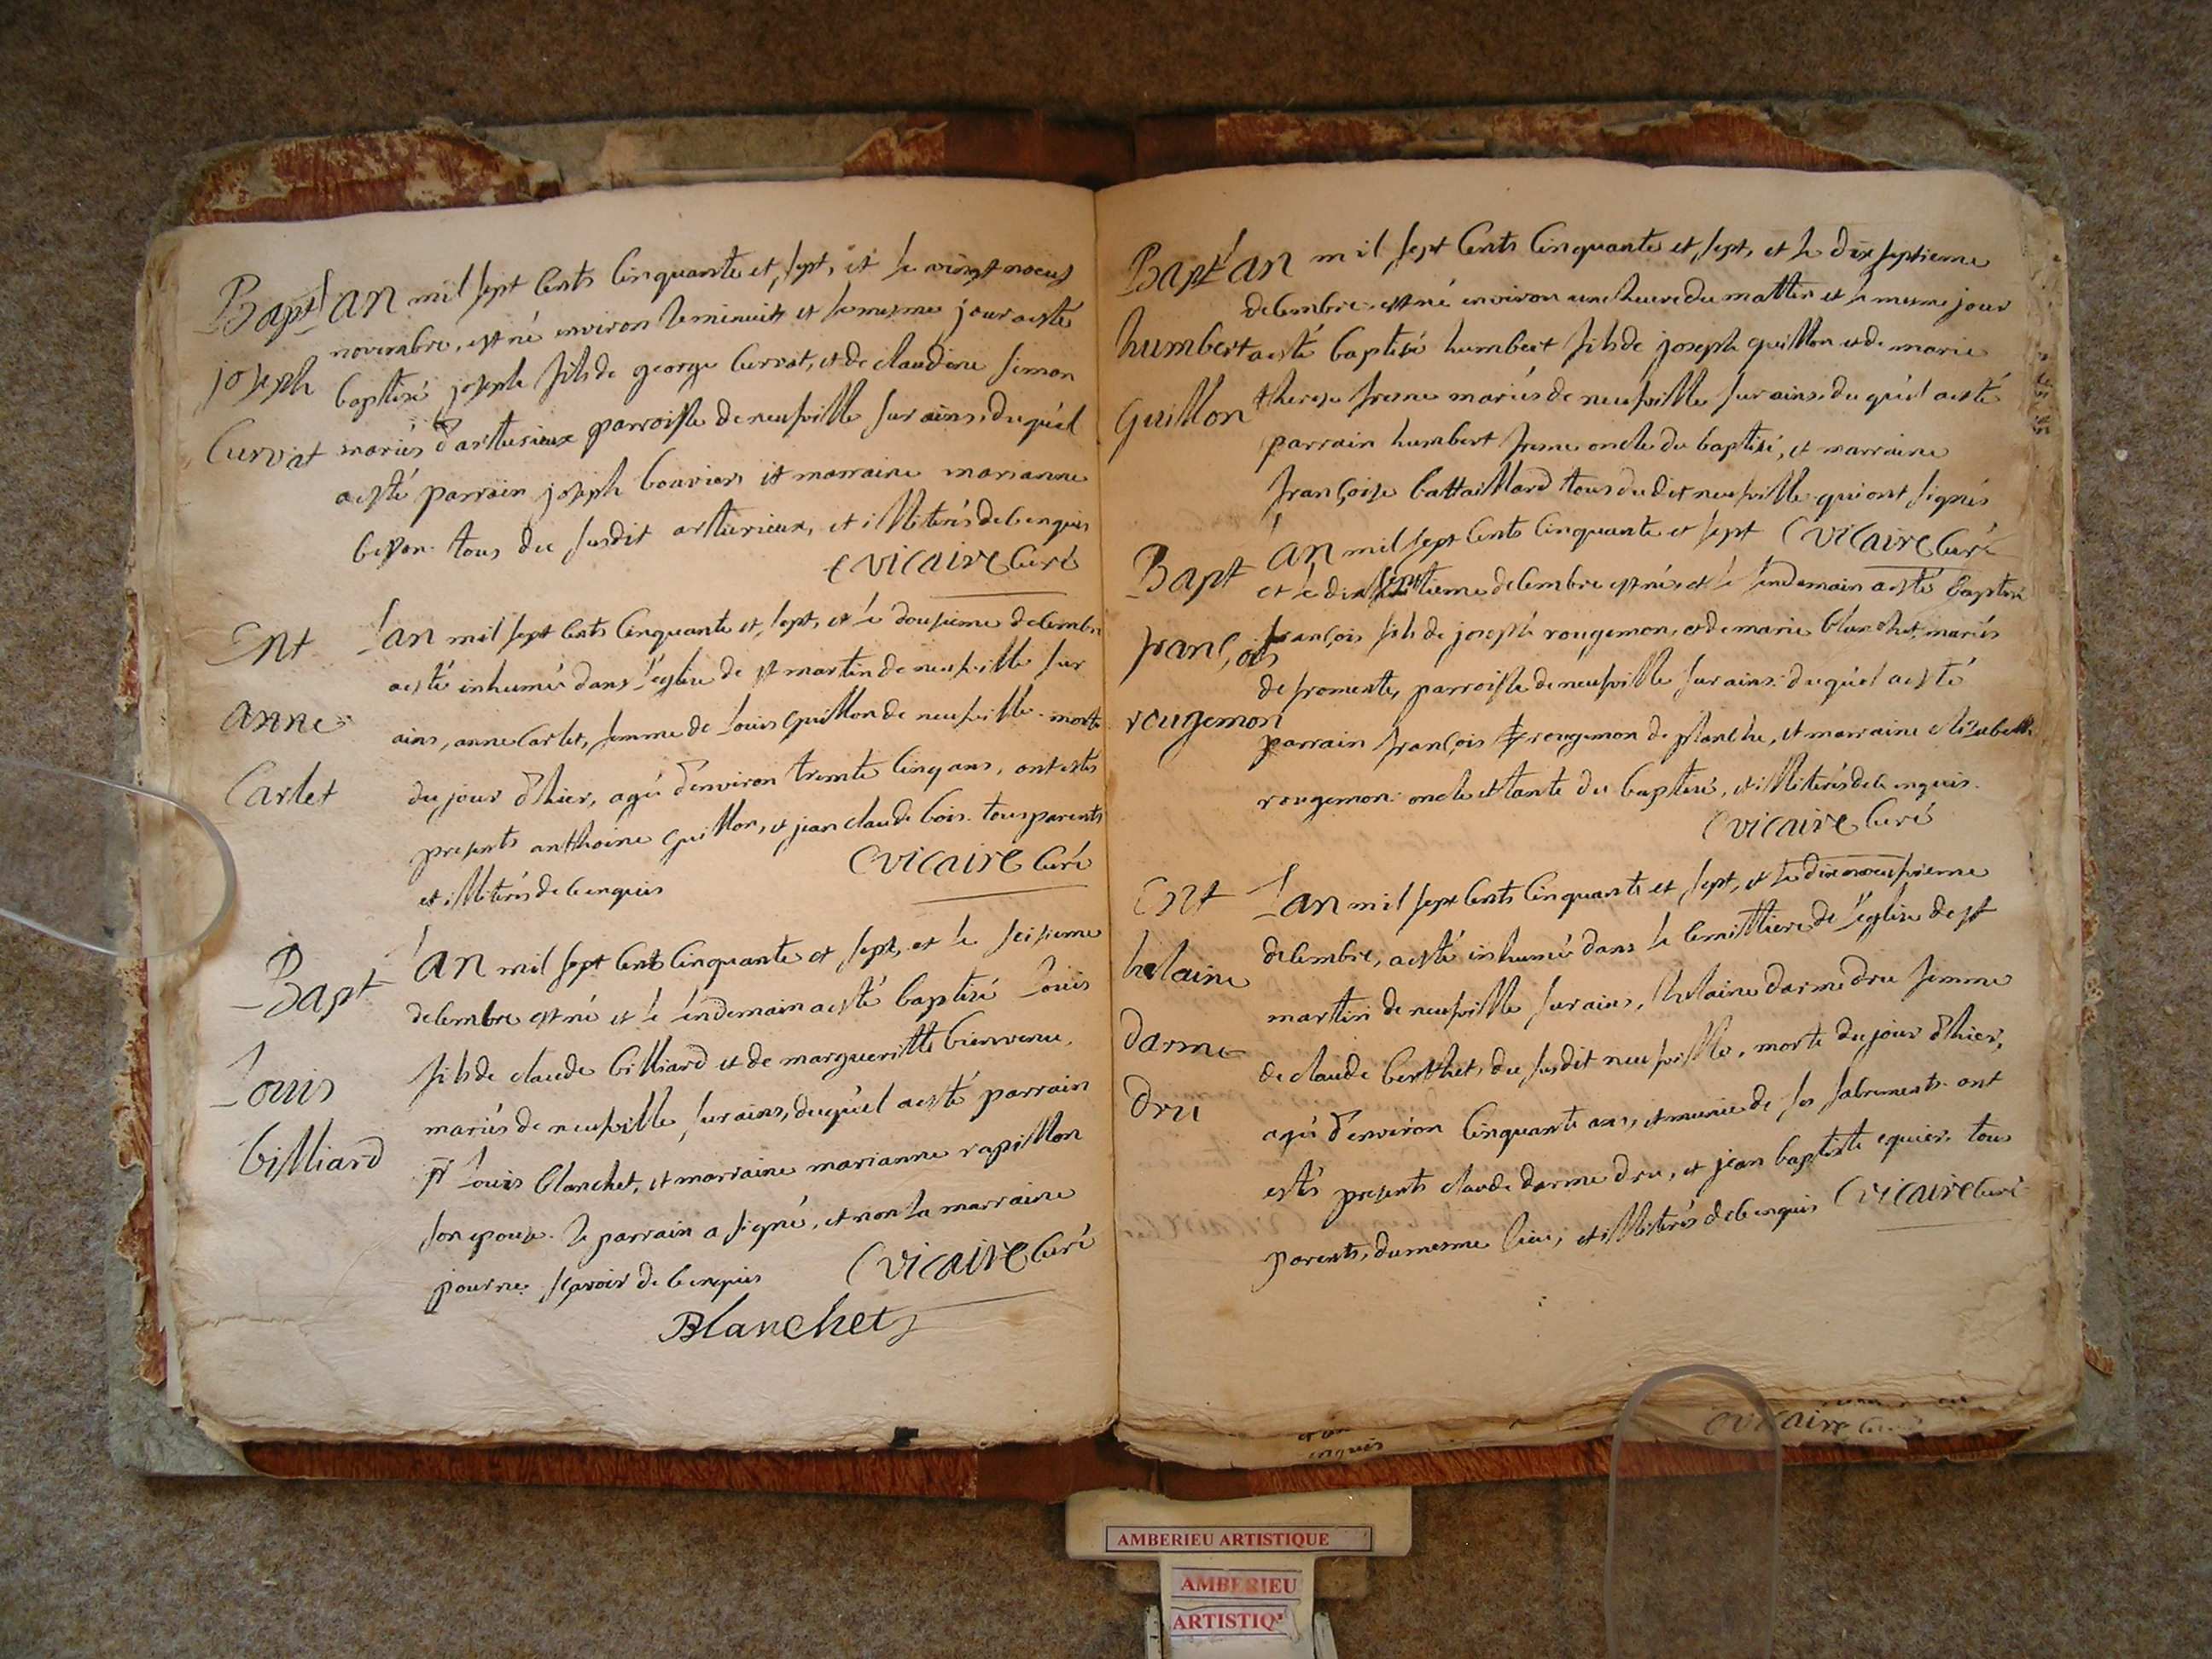 Bapt
joseph
Curvat
L'an mil sept cents cinquante et sept, et le vingt noeuf
novembre, est né environ le minuit et le mesme jour a esté
baptisé joseph fils de george Curvat, et de claudine simon
mariés d'arturieux parroisse de neufville sur ains, duquél
a esté parrain joseph bouvier, et marraine marianne
tous du susdit arturieux, et illiterés de ce enquis
C vicaire Curé
Ent
anne
Carlet
L'an mil sept cents cinquante et sept, et le dousieme decembre
a esté inhumée dans l'église de st martin de neufville sur
ains, anne Carlet, femme de Louis Guillon de neufville morte
du jour d'hier, agée d'environ trente cinq ans, ont estés
presents anthoine Guillon, et jean claude bois tous parents
et illiterés de ce enquis
C vicaire Curé
Bapt
Louis
billiard
L'an mil sept cents cinquante et sept, et le seisieme
decembre est né et le lendemain a esté baptisé Louis
fils de claude billiard et de margueritte bienvenu,
mariés de neufville sur ains, duquél a esté parrain
sr Louis blanchet, et marraine marianne rapillon
son epouse. le parrain a signé, et non la marraine
pour ne sçavoir de ce enquis
C vicaire Curé
Blanchet
Bapt
humbert
Guillon
L'an mil sept cents cinquante et sept, et le dix septieme
decembre, est né environ une heure du mattin et le mesme jour
a esté baptisé humbert fils de joseph guillon et de marie
therese fresne mariés de neufville sur ains, duquél a esté
parrain humbert fresne oncle du baptisé, et marraine
françoise battaillard tous dudit neufville qui ont signés
C vicaire Curé
Bapt
françois
rougemon
L'an mil sept cents cinquante et sept
et le dix septieme decembre est né, et le lendemain a esté baptisé
françois fils de joseph rougemon, et de marie blanchet mariés
de fromente, parroisse de neufville sur ains duquél a esté
parrain françois rougemon de planche, et marraine elizabeth
rougemon oncle et tante du baptisé, et illiterés de ce enquis.
C vicaire Curé
Ent
helaine
darme
dru
L'an mil sept cents cinquante et sept, et le dix noeufvieme
decembre, a esté inhumée dans le cemittiere de l'église de st
martin de neufville sur ains, helaine darme dru femme
de claude berthet, du susdit neufville, morte du jour d'hier,
agée d'environ cinquante ans, et munie de ses sacrements ont
estés presents claude darme dru, et jean baptiste equier, tous
parents, du mesme lieu, et illiterés de ce enquis C vicaire Curé
enquis
C vicaire
AMBERIEU ARTISTIQUE
AMBERIEU
ARTISTIQ